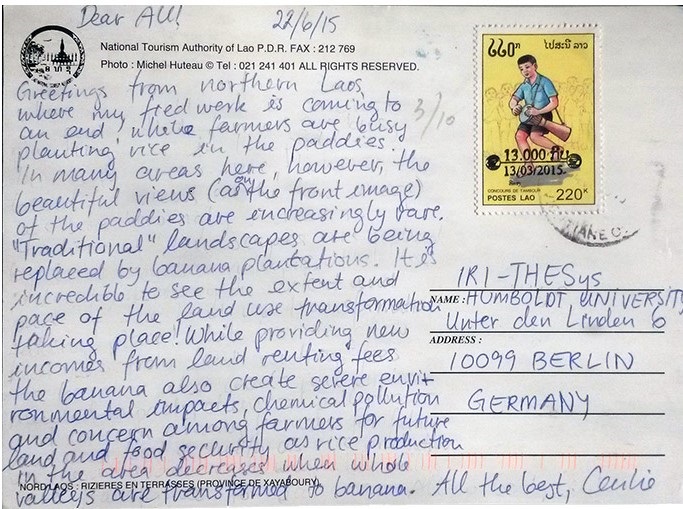 Dear All!
22/6/15
National Tourism Authority of Lao P.D.R. FAX : 212 769
Photo : Michel Huteau © Tel : 021 241 401 ALL RIGHTS RESERVED.
Greetings from northern Laos,
where my field work is coming to
an end, while farmers are busy
planting rice in the paddies.
In many areas here, however, the
beautiful views (as on the front image)
of the paddies are increasingly rare.
"Traditional" landscapes are being
replaced by banana plantations. It is
incredible to see the extent and
pace of the land use transformation
taking place! While providing new
incomes from land renting fees
the banana also create severe envi-
ronmental impacts, chemical pollution
and concern among farmers for future
land and food security, as rice production
in the area decreases when whole
valleys are transformed to banana. All the best, Cecilie
NORD LAOS : RIZIERES EN TERRASSES (PROVINCE DE XAYABOURY)
3/10
໒໒໐ກ
ໄປສະນີ ລາວ
13.000 ກີບ
13/03/2015.
CONCOURS DE TAMBOUR
POSTES LAO
220K
IRI-THESys
NAME : HUMBOLDT UNIVERSITY
Unter den Linden 6
ADDRESS :
10099 BERLIN
GERMANY